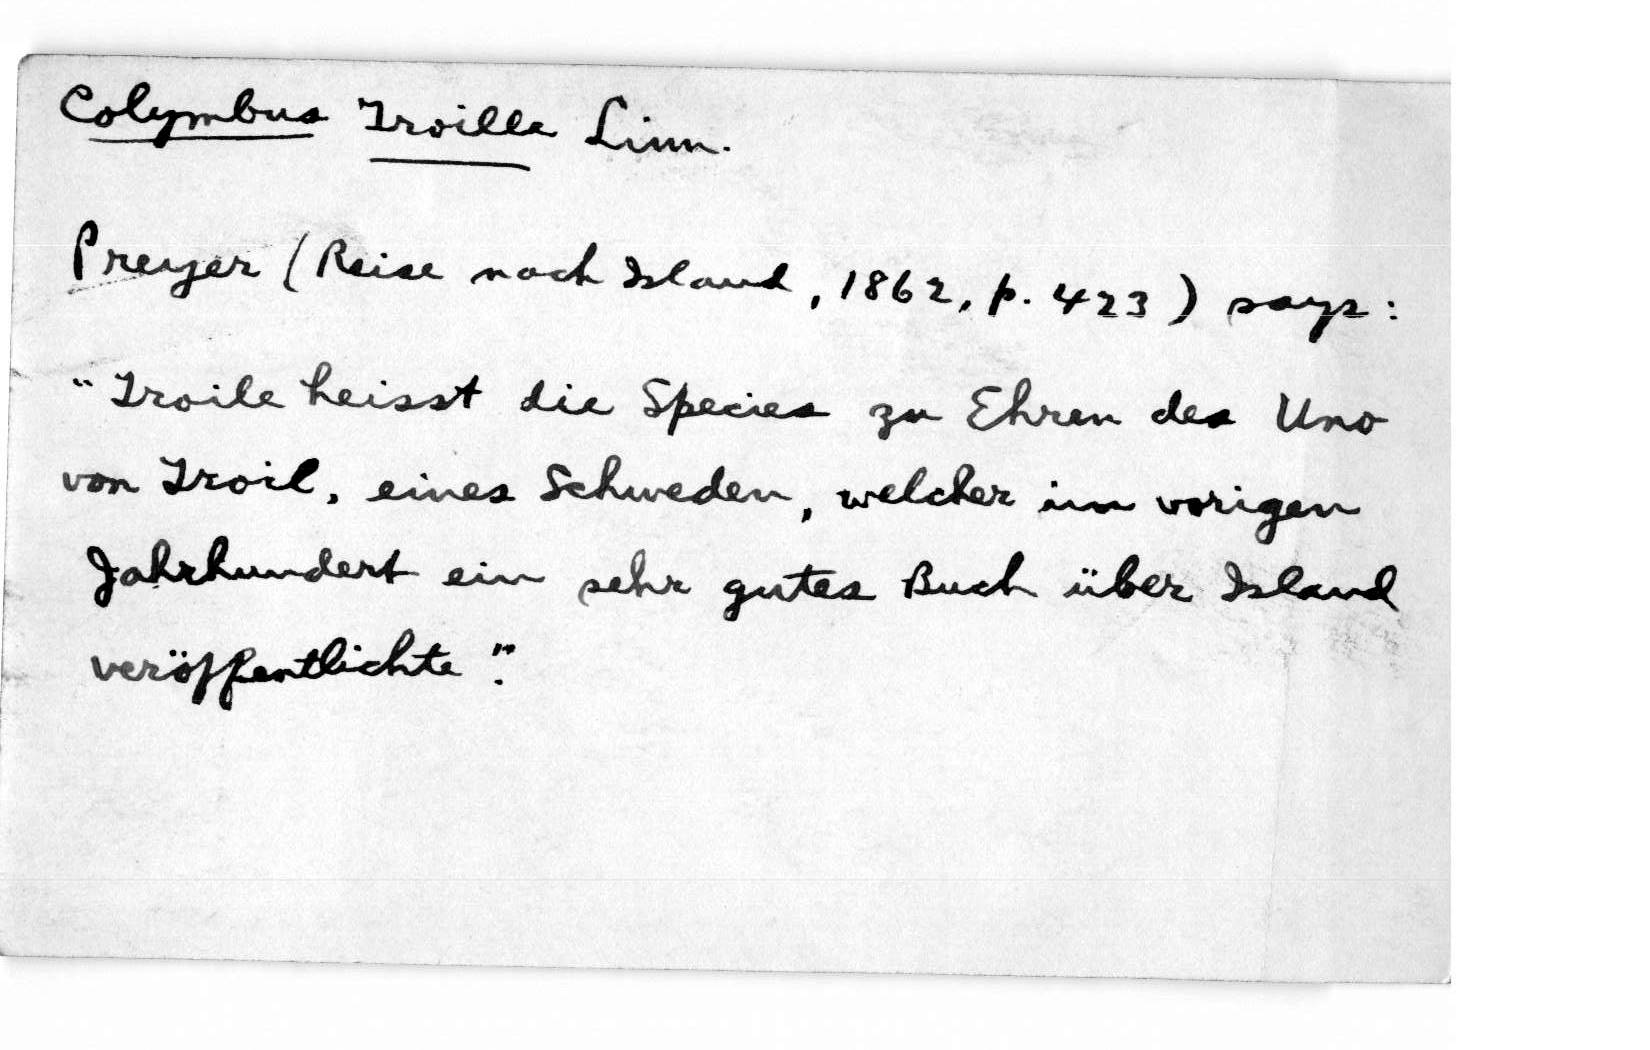 Colymbus Troille Linn.
Preyer (Reise nach Island, 1862, p. 423) says:
"Troile heisst die Species zu Ehren des Uno
von Troil, eines Schweden, welcher im vorigen
Jahrhundert ein sehr gutes Buch über Island
veröffentlichte".